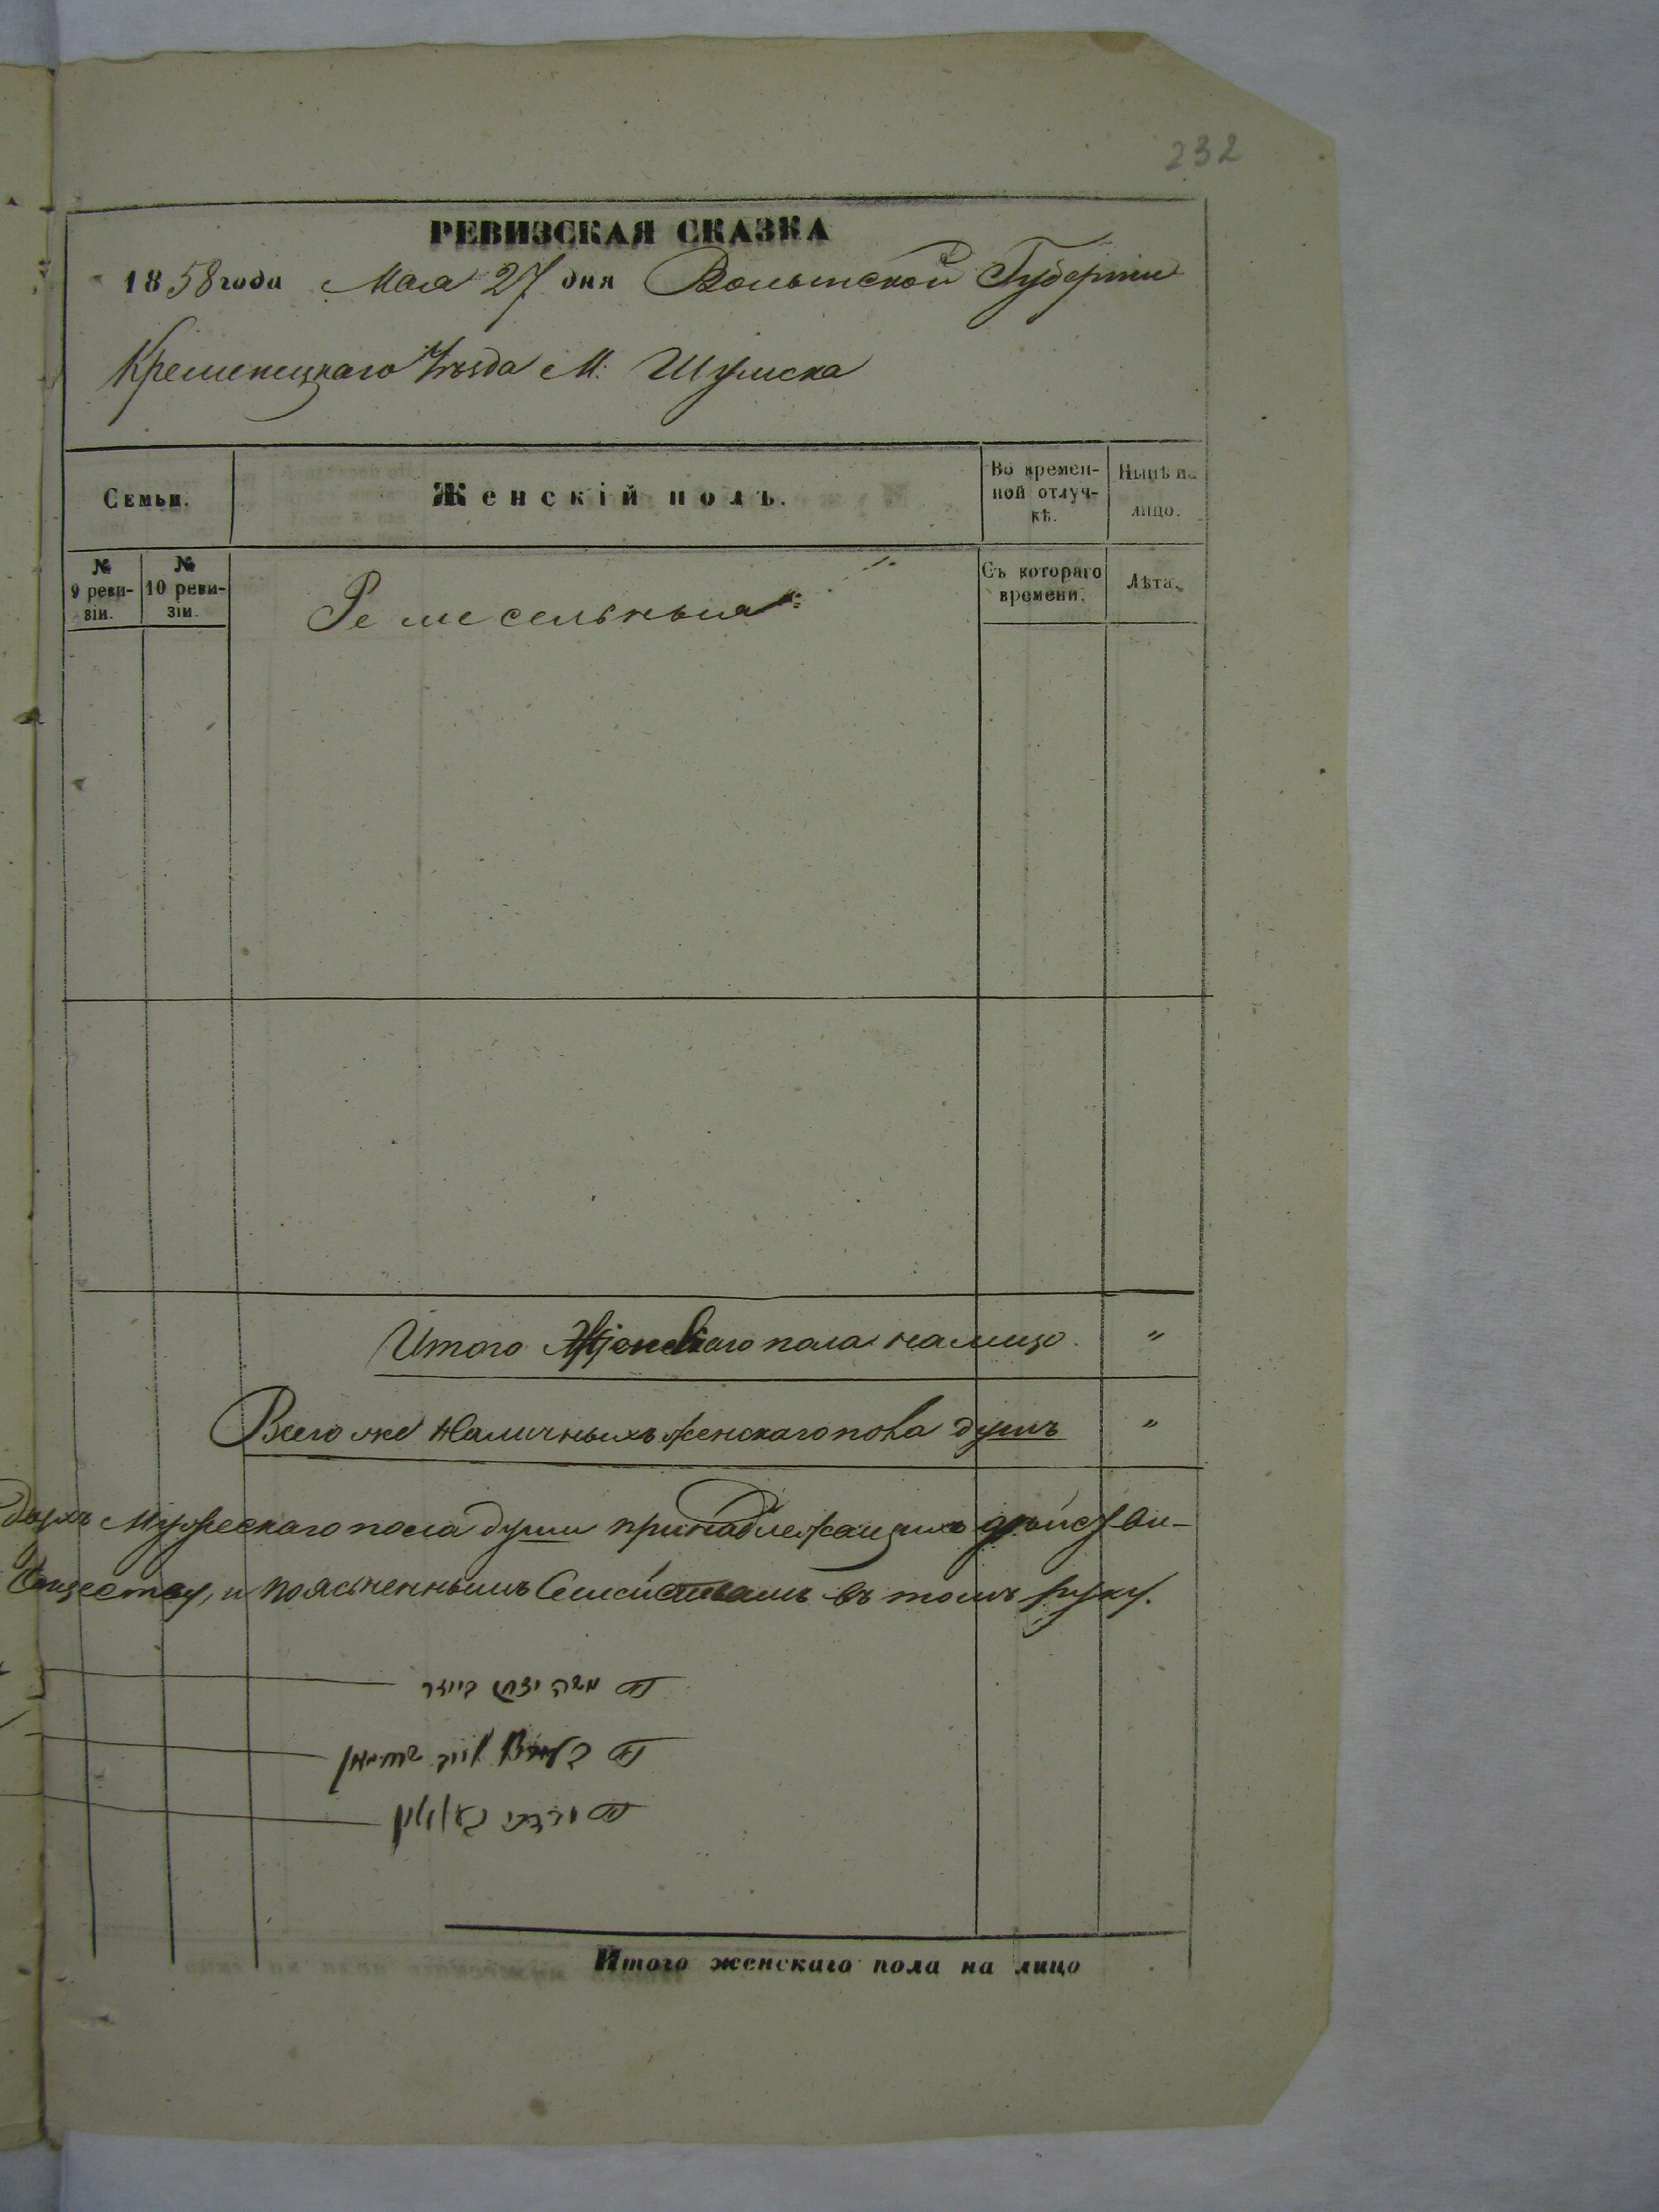 232
РЕВИЗСКАЯ СКАЗКА
1858 года Мая 27 дня Волынской Губерніи
Кременецкаго Уѣзда М: Шумска
Семьи.
Женскій полъ.
Во времен-
ной отлуч-
кѣ.
Нынѣ на
лицо.
№
9 реви-
зіи.
№
10 реви-
зіи.
Съ котораго
времени.
Лѣта.
Ремесельныя
Итого Женскаго пола налицо. "
Всего же Наличныхъ женскаго пола душъ "
Мужескаго пола души принадлежащихъ дѣйстви-
и поясненнымъ Семействамъ въ томъ
משה יצחק
Итого женскаго пола на лицо